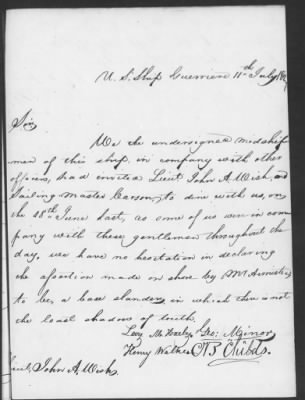 U. S. Ship Guerriere 11th July
Sir,
We the undersigned midship
men of this ship, in company with other
officers, had invited Lieut John A. Wish, and
Sailing Master Carson, to dine with us, on
the 28th June last, as some of us were in com
pany with these gentlemen throughout the
day, we have no hesitation in declaring
the assertion made on shore by Mr
to be, a base slander, in which there is not
the least shadow of truth.
Levy Geo: Minor
Henry Walke C B Childs.
Lieut. John A. Wish